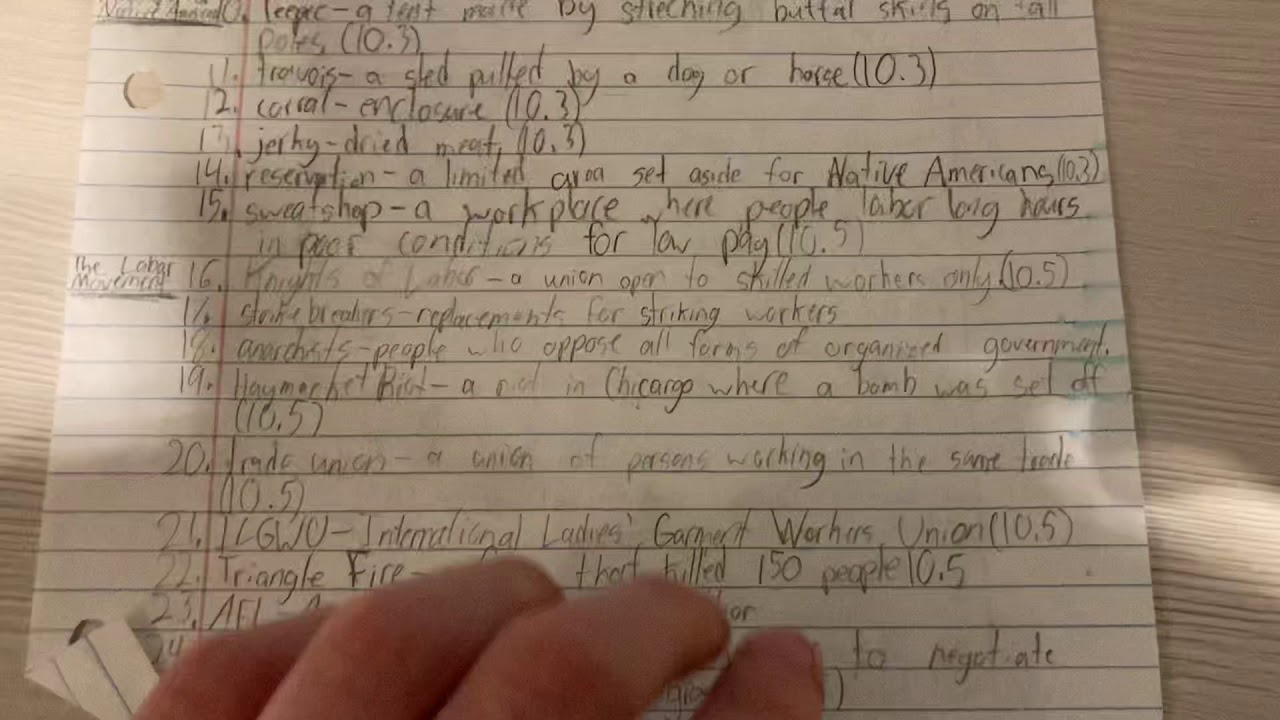 Native Americans 10. teepee-a tent made by streching buffal skins on tall
poles (10.3)
11. travois-a sled pulled by a dog or horse(10.3)
12. corral-enclosure (10.3)
13. jerky-dried meat, (10.3)
14. reservation-a limited area set aside for Native Americans,(10.3)
15. sweatshop-a workplace where people labor long hours
in poor conditions for low pay(10.5)
The Labor Movement 16. Knights of Labor-a union open to skilled workers only.(10.5)
17. strikebreakers-replacements for striking workers
18. anarchists-people who oppose all forms of organized government.
19. Haymarket Riot-a riot in Chicargo where a bomb was set off
(10.5)
20. trade union-a union of persons working in the same trade
(10.5)
21. ILGWU-International Ladies' Garment Workers Union(10.5)
22. Triangle Fire- that killed 150 people 10.5
23. AFL-
24 to negotiate
)